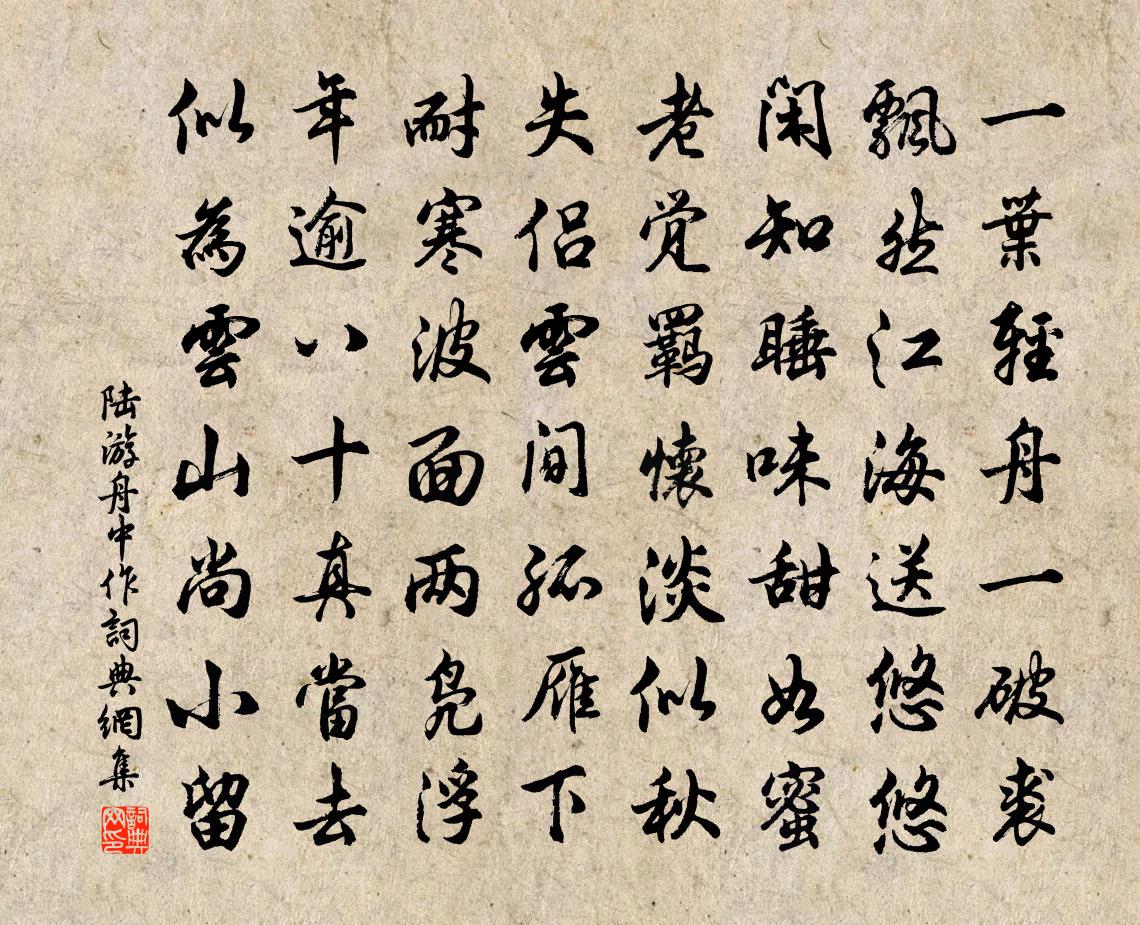 一葉輕舟一破裘
飄然江海送悠悠
閑知睡味甜如蜜
老覺羈懷淡似秋
失侶雲間孤雁下
耐寒波面兩鳧浮
年逾八十真當去
似為雲山尚小留
陆游舟中作詞典網集
詞典
网印